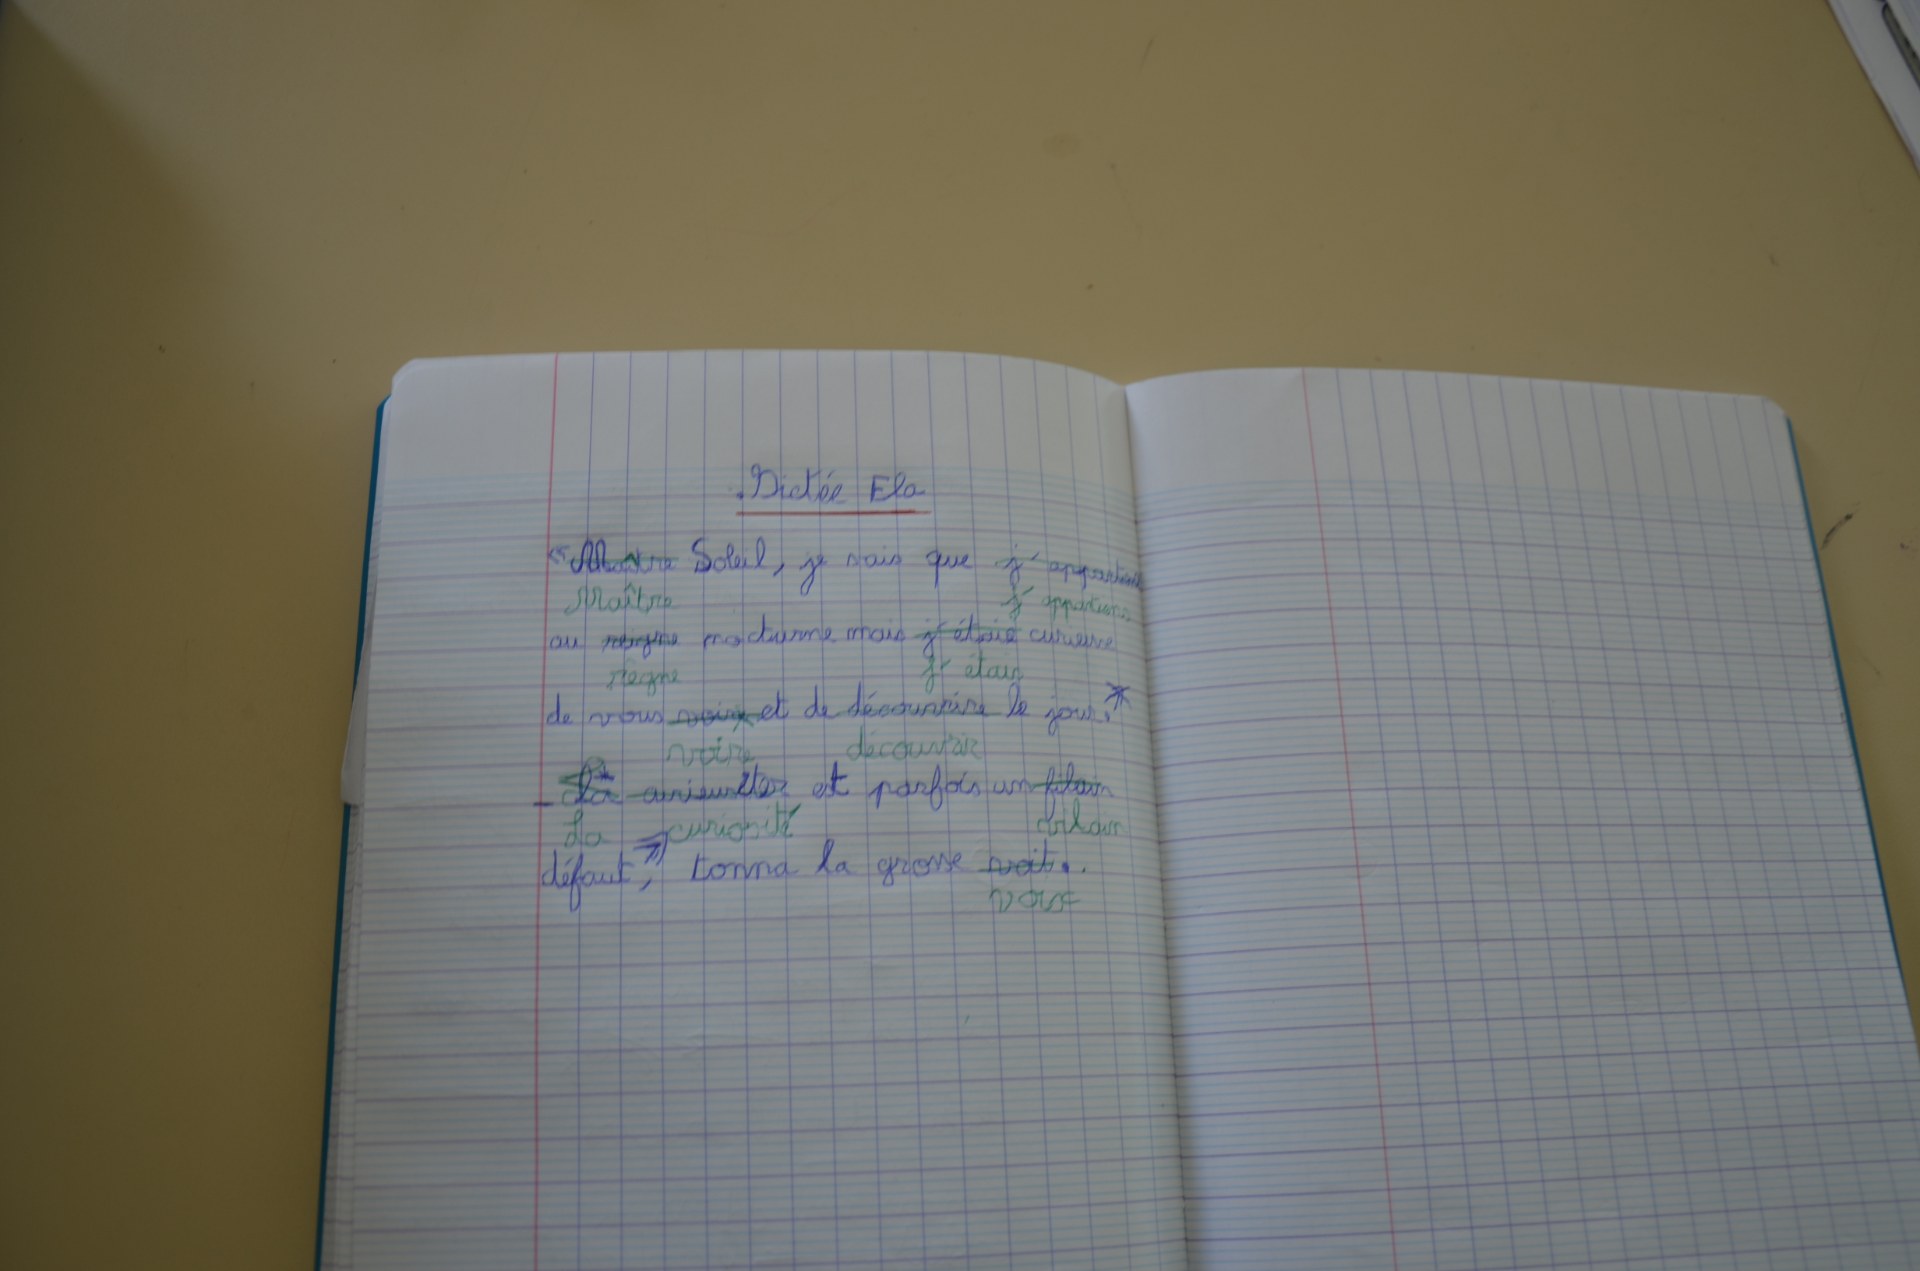 Dictée Ela
" Maître Soleil, je sais que j'appartient
Maître j'appartiens
au reigne nocturne mais j'étais curieuse
règne j'étais
de vous voir et de découvrire le jour. "
voire découvrir
- La est parfois un filain
La curiosité vilain
défaut, " tonna la grosse voit.
voix